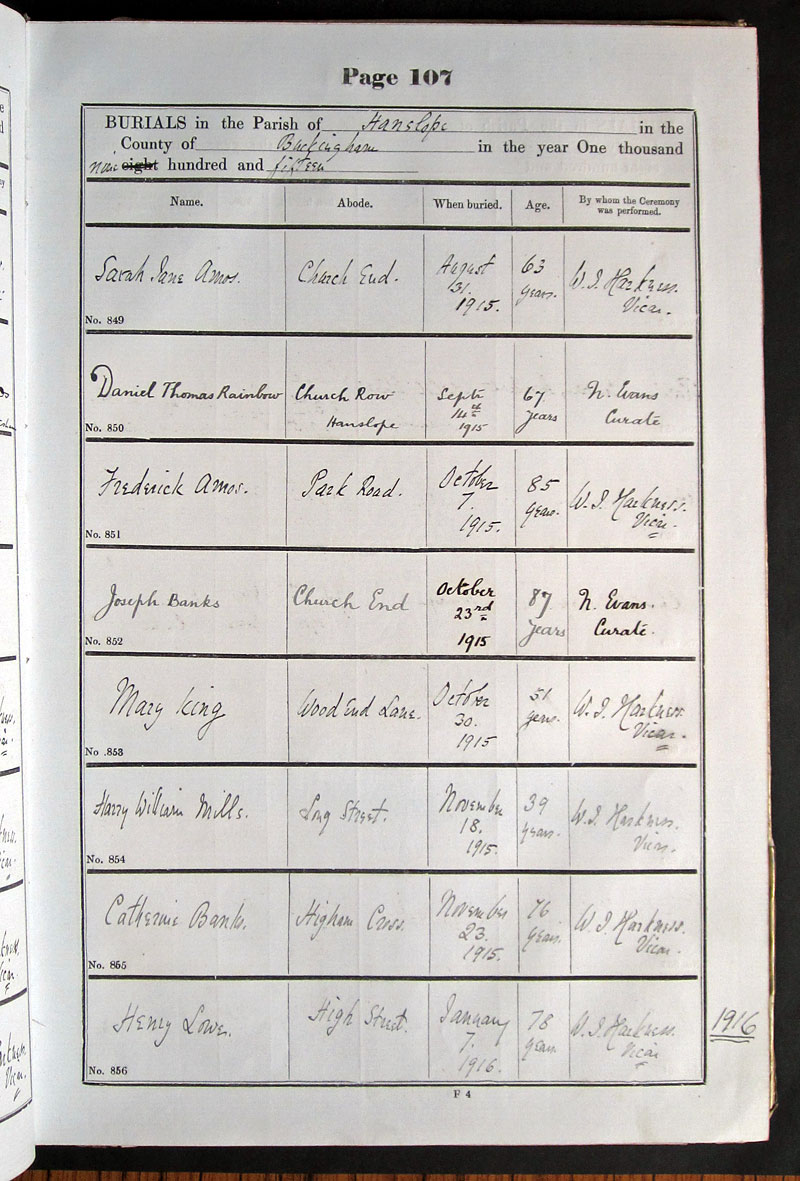 Page 107
BURIALS in the Parish of Hanslope in the
County of Buckingham in the year One thousand
nine eight hundred and fifteen
Name. Abode. When buried. Age. By whom the Ceremony was performed.
Sarah Jane Amos. Church End. August 63 W. J. Harkness.
31. years. Vicar.
1915.
No. 849
Daniel Thomas Rainbow Church Row Septr 67 N. Evans
Hanslope 14th years Curate
1915
No. 850
Frederick Amos. Park Road. October 85 W. J. Harkness.
7. years. Vicar.
1915.
No. 851
Joseph Banks Church End October 87 N. Evans.
23rd years Curate.
1915
No. 852
Mary King Wood End Lane. October 51 W. J. Harkness.
30. years. Vicar.
1915
No. 853
Harry William Mills. Long Street. November 39 W. J. Harkness.
18. years. Vicar.
1915.
No. 854
Catherine Banks. Higham Cross. November 76 W. J. Harkness.
23. years. Vicar.
1915.
No. 855
Henry Lowe. High Street. January 78 W. J. Harkness.
7. years. Vicar
1916.
No. 856
1916
F 4